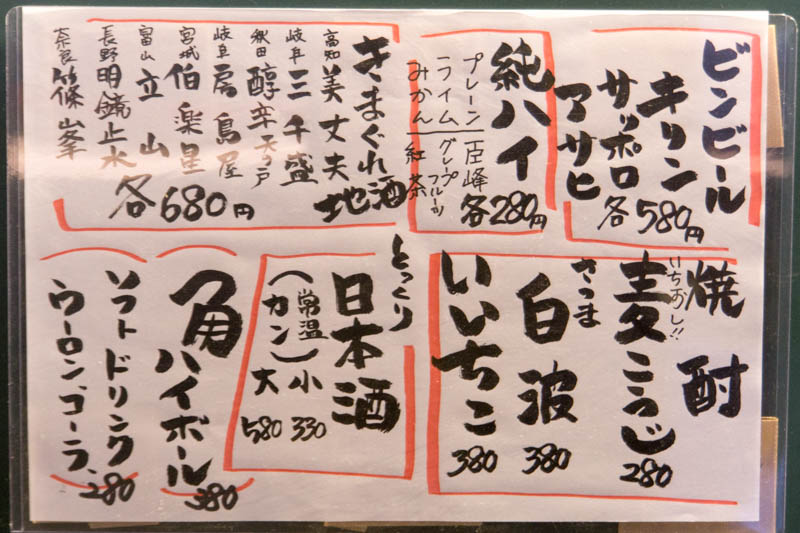 ビンビール
キリン
サッポロ
アサヒ
各580円
純ハイ
プレーン
ライム
みかん
巨峰
グレープフルーツ
紅茶
各280円
きまぐれ地酒
高知 美丈夫
岐阜 三千盛
秋田 醇辛天の戸
岐阜 房島屋
宮城 伯楽星
富山 立山
長野 明鏡止水
奈良 篠峯
各680円
焼酎
いちおし!!
麦こうじ 280
さつま
白波 380
いいちこ 380
とっくり
日本酒
(常温) 小 330
(カン) 大 580
角ハイボール 380
ソフトドリンク
ウーロン、コーラ、 280